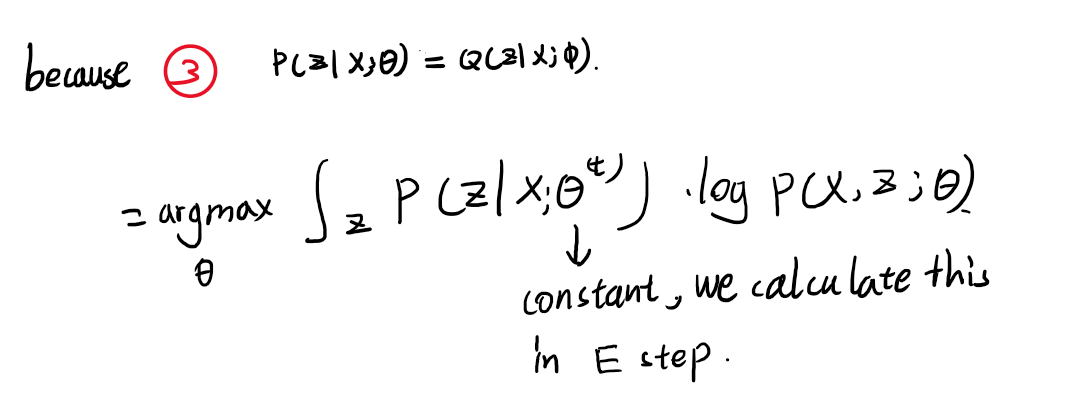 because ③ P(z|x;θ) = Q(z|x;φ).
= argmax ∫z P(z|x;θ^(t)) · log P(x,z;θ)
θ
↓
constant, we calculate this
in E step.